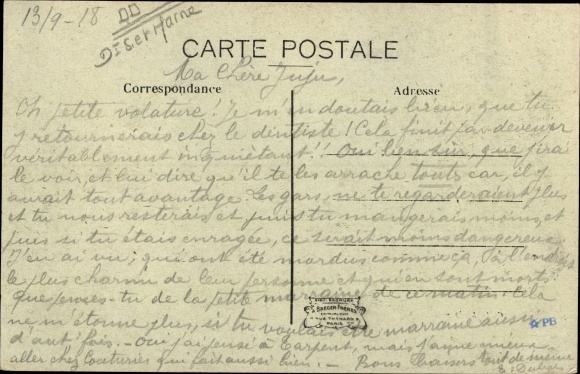 13/9-18
DD
Dis. et Marne
CARTE POSTALE
Ma chère Juju,
Correspondance
Adresse
Oh petite volature! Je m'en doutais bien, que tu
y retournerais chez le dentiste! Cela finit par devenir
véritablement inquiétant!! Oui bien sûr, que j'irai
le voir, et lui dire qu'il te les arrache touts car, il y
aurait tout avantage. Les gars, ne te regarderaient plus
et tu nous resterais, et puis tu mangerais moins, et
puis si tu étais enragée, ce serait moins dangereux.
J'en ai vu, qui ont été mordus comme ça, à l'endroit
le plus charnu de leur personne et qui en sont morts
que penses-tu de la petite marraine de ce matin. Cela
ne m'étonne plus, si tu voulais être marraine aussi
d'aut' fois. - Oui j'ai pensé à Carpent, mais j'aime mieux
aller chez Couturier qui fait aussi bien. - Bons baisers tout de même
SAEGER FRÈRES
RUE THÉNARD
PARIS
PB